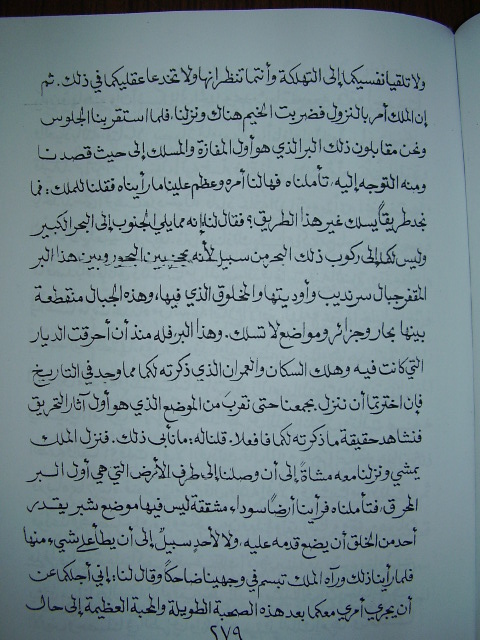 ولا تلقيا نفسيكما إلى التهلكة وأنتما تنظرانها ولا تخدعا عقليكما في ذلك. ثم
إن الملك أمر بالنزول فضربت الخيم هناك ونزلنا، فلما استقر بنا الجلوس
ونحن مقابلون ذلك البر الذي هو أول المفازة والمسلك إلى حيث قصدنا
ومنه التوجه إليه، تأملناه فهالنا أمره وعظم علينا ما رأيناه فقلنا للملك: فما
نجد طريقاً يسلك غير هذا الطريق؟ فقال لنا إنه مما يلي الجنوب إلى البحر الكبير
وليس لكما إلى ركوب ذلك البحر من سبيل لأنه يحجز بين البحور وبين هذا البر
المقفر جبال سرنديب وأوديتها والمخلوق الذي فيها، وهذه الجبال منقطعة
بينها بحار وجزائر ومواضع لا تسلك. وهذا البر فله منذ أن أحرقت الديار
التي كانت فيه وهلك السكان والعمران الذي ذكرته لكما مما وجد في التاريخ
فإن اخترتما أن ننزل بجمعنا حتى نقرب من الموضع الذي هو أول آثار التحريق
فنشاهد حقيقة ما ذكرته لكما فافعلا. قلنا له: ما نأبى ذلك. فنزل الملك
يمشي ونزلنا معه مشاةً إلى أن وصلنا إلى طرف الأرض التي هي أول البر
المحرق، فتأملناه فرأينا أرضاً سوداء مشققة ليس فيها موضع شبر يقدر
أحد من الخلق أن يضع قدمه عليه، ولا لأحدٍ سبيلٌ إلى أن يطأ على شيء منها
فلما رأينا ذلك ورآه الملك تبسم في وجهينا ضاحكاً وقال لنا: إني أجلكما عن
أن يجري أمري معكما بعد هذه الصحبة الطويلة والمحبة العظيمة إلى حال
٢٧٩